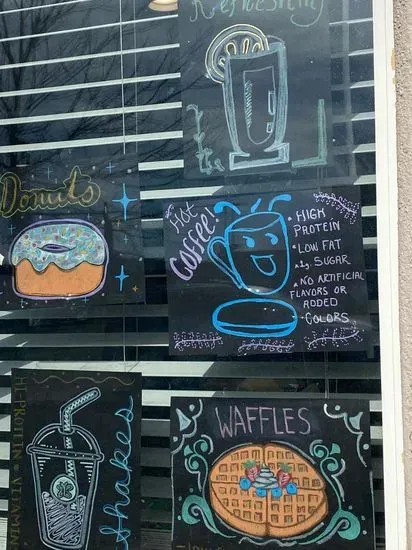 Refreshing
Tea
Donuts
Hot
Coffee!
• HIGH
PROTEIN
• LOW FAT
• 2g. SUGAR
• NO ARTIFICIAL
FLAVORS OR
ADDED
• COLORS
HI-PROTEIN • VITAMIN
Shakes
WAFFLES